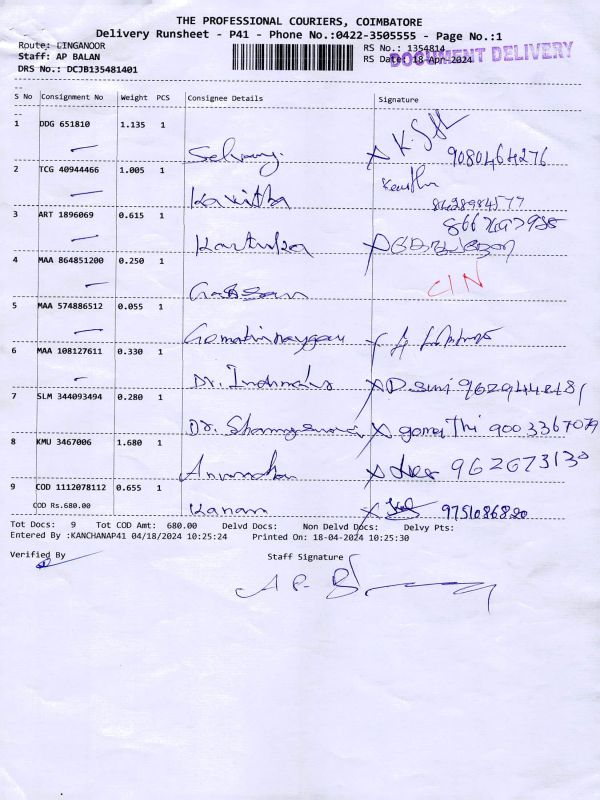 THE PROFESSIONAL COURIERS, COIMBATORE
Delivery Runsheet - P41 - Phone No.:0422-3505555 - Page No.:1
Route: LINGANOOR
RS No.: 1354814
Staff: AP BALAN
RS Date: 18-Apr-2024
DOCUMENT DELIVERY
DRS No.: DCJB135481401
S No Consignment No Weight PCS Consignee Details Signature
1 DDG 651810 1.135 1
9080464276
2 TCG 40944466 1.005 1
Kavitha
3 ART 1896069 0.615 1
Kartika
4 MAA 864851200 0.250 1
CIN
5 MAA 574886512 0.055 1
6 MAA 108127611 0.330 1
7 SLM 344093494 0.280 1
Dr. gomathi 9003367079
8 KMU 3467006 1.680 1
962673130
9 COD 1112078112 0.655 1
COD Rs.680.00
Kanan 9751086820
Tot Docs: 9 Tot COD Amt: 680.00 Delvd Docs: Non Delvd Docs: Delvy Pts:
Entered By :KANCHANAP41 04/18/2024 10:25:24 Printed On: 18-04-2024 10:25:30
Verified By Staff Signature